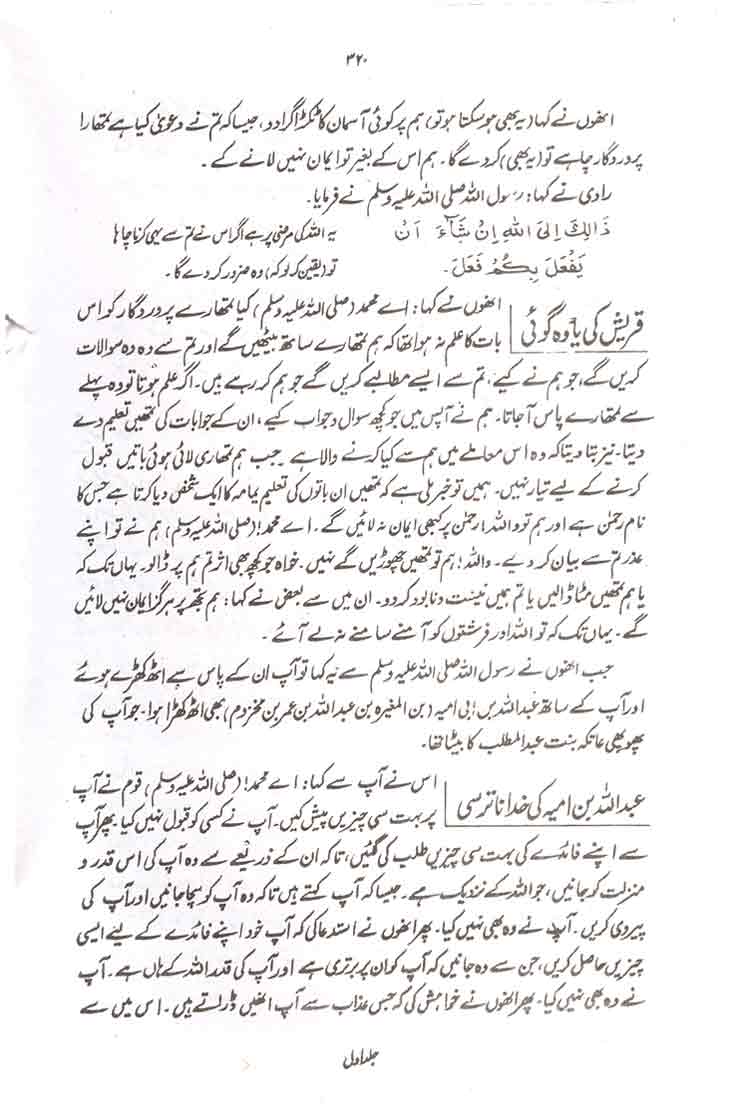 ۳۲۰
انھوں نے کہا (یہ بھی ہوسکتا ہو تو) ہم پر کوئی آسمان کا ٹکڑا گرا دو، جیسا کہ تم نے دعویٰ کیا ہے تمھارا
پروردگار چاہے تو (یہ بھی) کردے گا۔ ہم اس کے بغیر تو ایمان نہیں لانے کے۔
راوی نے کہا: رسول اللہ صلی اللہ علیہ وسلم نے فرمایا۔
ذَالِكَ اِلَى اللهِ اِنْ شَآءَ اَنْ یہ اللہ کی مرضی پر ہے اگر اس نے تم سے یہی کرنا چاہا
يَفْعَلَ بِكُمْ فَعَلَ۔ تو (یقین کر لو کہ) وہ ضرور کردے گا۔
قریش کی یاوہ گوئی انھوں نے کہا: اے محمد (صلی اللہ علیہ وسلم) کیا تمھارے پروردگار کو اس
بات کا علم نہ ہوا تھا کہ ہم تمھارے ساتھ بیٹھیں گے اور تم سے وہ وہ سوالات
کریں گے، جو ہم نے کیے، تم سے ایسے مطالبے کریں گے جو ہم کر رہے ہیں۔ اگر علم ہوتا تو وہ پہلے
سے تمھارے پاس آجاتا۔ ہم نے آپس میں جو کچھ سوال و جواب کیے، ان کے جوابات کی تمھیں تعلیم دے
دیتا۔ نیز بتا دیتا کہ وہ اس معاملے میں ہم سے کیا کرنے والا ہے جب ہم تمھاری لائی ہوئی باتیں قبول
کرنے کے لیے تیار نہیں۔ ہمیں تو خبر ملی ہے کہ تمھیں ان باتوں کی تعلیم یمامہ کا ایک شخص دیا کرتا ہے جس کا
نام رحمٰن ہے اور ہم تو واللہ! رحمٰن پر کبھی ایمان نہ لائیں گے۔ اے محمد! (صلی اللہ علیہ وسلم) ہم نے تو اپنے
عذر تم سے بیان کر دیے۔ واللہ! ہم تو تمھیں چھوڑیں گے نہیں۔ خواہ جو کچھ بھی اثر تم ہم پر ڈالو۔ یہاں تک کہ
یا ہم تمھیں مٹا ڈالیں یا تم ہمیں نیست و نابود کر دو۔ ان میں سے بعض نے کہا: ہم تجھ پر ہرگز ایمان نہیں لائیں
گے۔ یہاں تک کہ تو اللہ اور فرشتوں کو آمنے سامنے نہ لے آئے۔
جب انھوں نے رسول اللہ صلی اللہ علیہ وسلم سے یہ کہا تو آپ ان کے پاس سے اٹھ کھڑے ہوئے
اور آپ کے ساتھ عبداللہ بن ابی امیہ (بن المغیرہ بن عبداللہ بن عمر بن مخزوم) بھی اٹھ کھڑا ہوا۔ جو آپ کی
پھوپھی عاتکہ بنت عبدالمطلب کا بیٹا تھا۔
عبداللہ بن امیہ کی خدا ناترسی اس نے آپ سے کہا: اے محمد! (صلی اللہ علیہ وسلم) قوم نے آپ
پر بہت سی چیزیں پیش کیں۔ آپ نے کسی کو قبول نہیں کیا پھر آپ
سے اپنے فائدے کی بہت سی چیزیں طلب کی گئیں، تاکہ ان کے ذریعے سے وہ آپ کی اس قدر و
منزلت کو جانیں، جو اللہ کے نزدیک ہے۔ جیسا کہ آپ کہتے ہیں تاکہ وہ آپ کو سچا جانیں اور آپ کی
پیروی کریں۔ آپ نے وہ بھی نہیں کیا۔ پھر انھوں نے استدعا کی کہ آپ خود اپنے فائدے کے لیے ایسی
چیزیں حاصل کریں، جن سے وہ جانیں کہ آپ کو ان پر برتری ہے اور آپ کی قدر اللہ کے ہاں ہے۔ آپ
نے وہ بھی نہیں کیا۔ پھر انھوں نے خواہش کی کہ جس عذاب سے آپ انھیں ڈراتے ہیں۔ اس میں سے
جلد اول